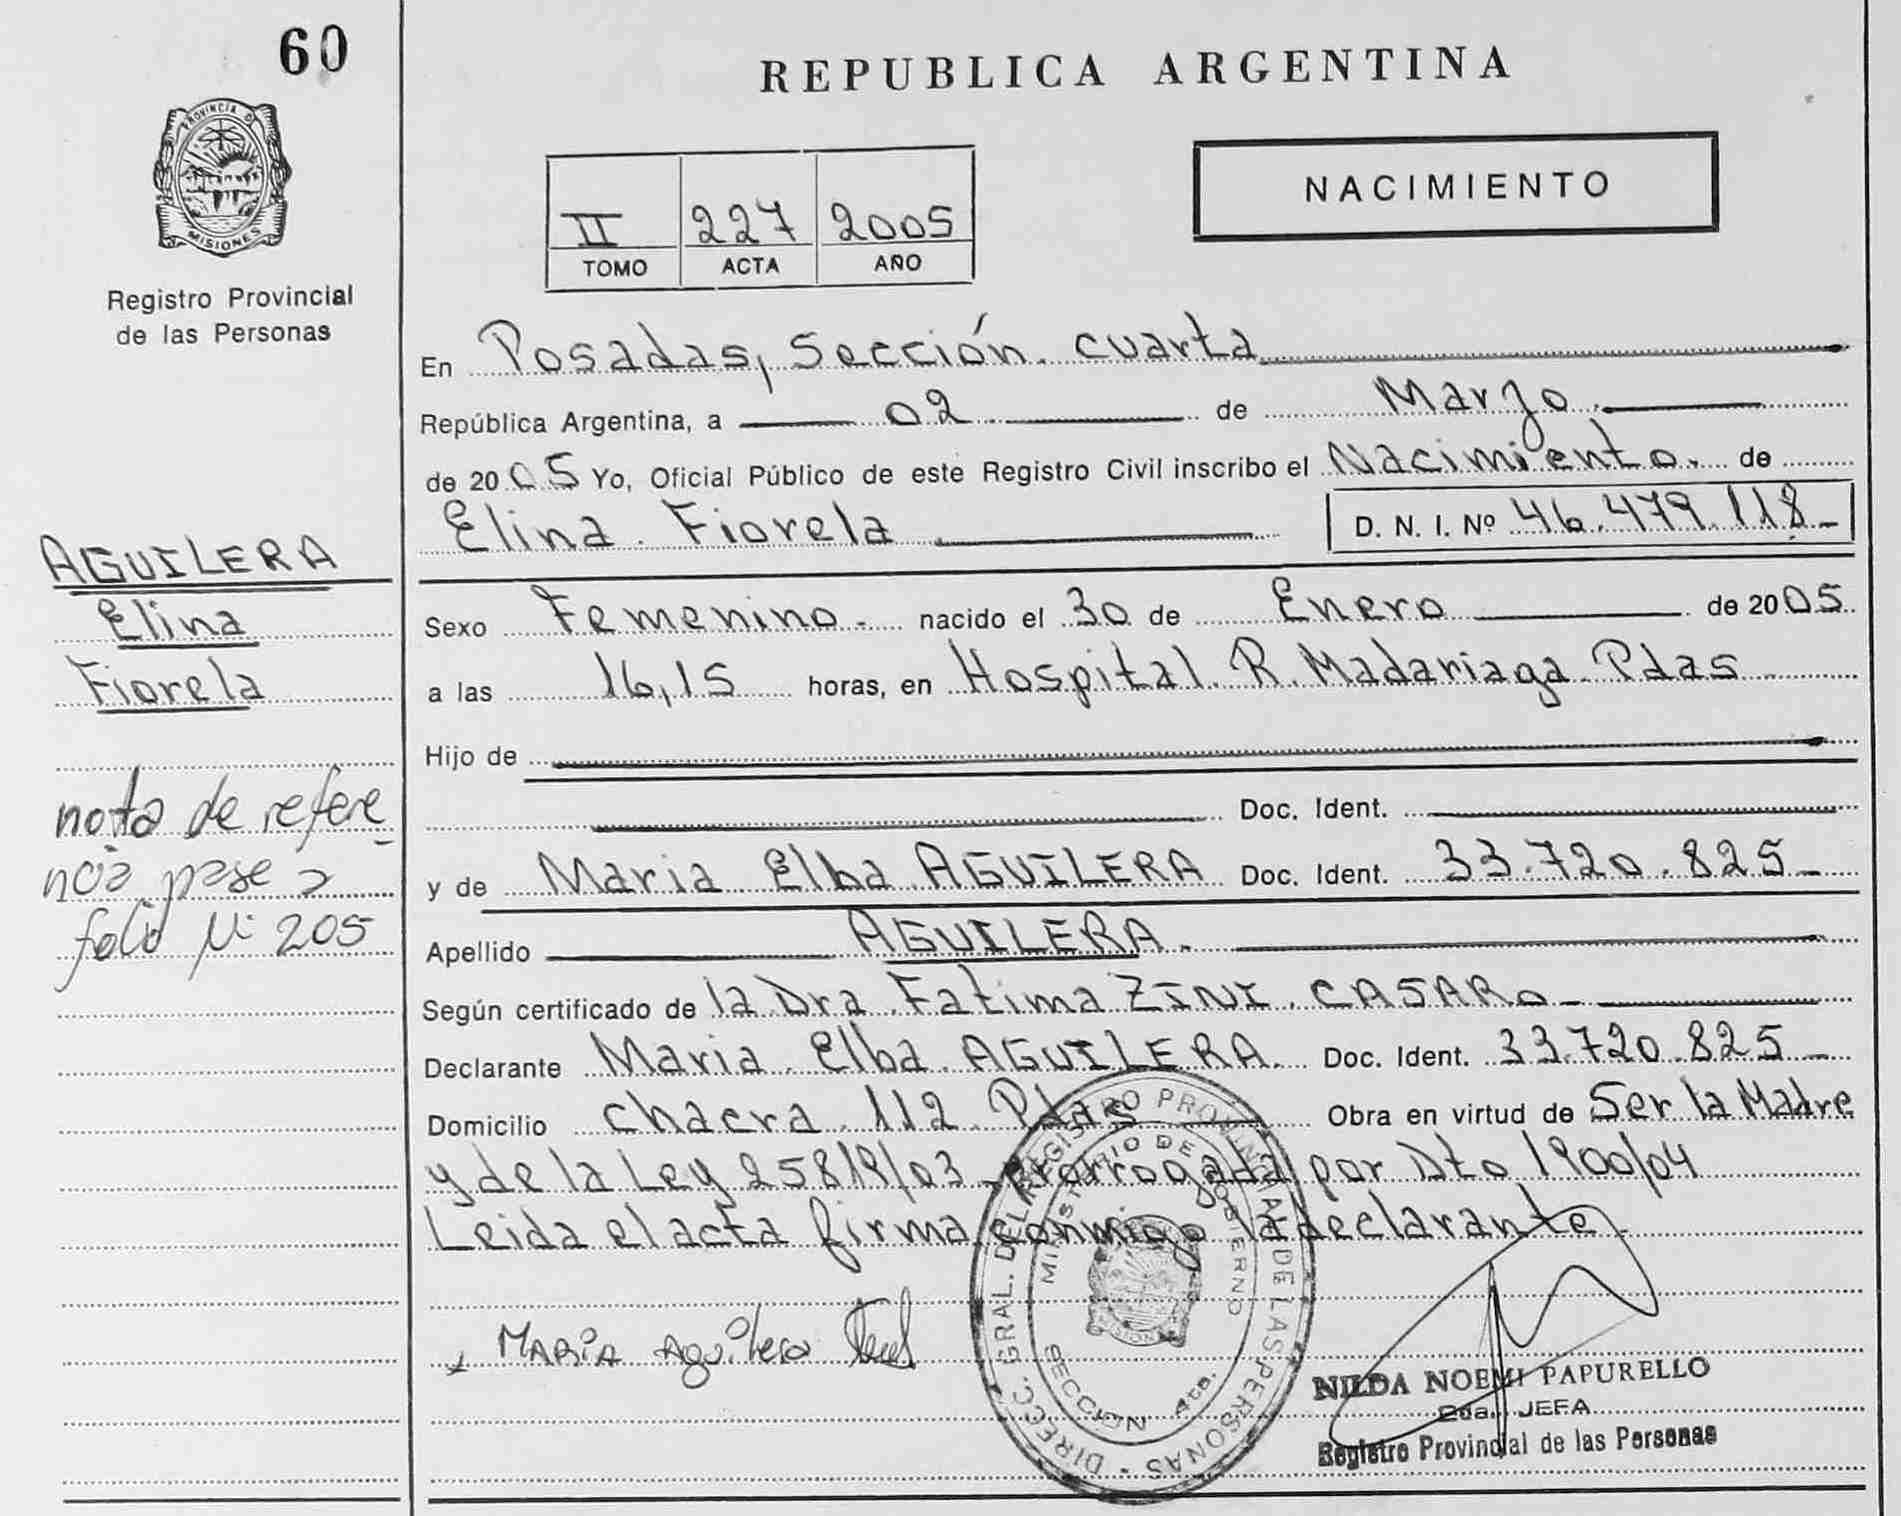 60
PROVINCIA D
MISIONES
Registro Provincial
de las Personas
AGUILERA
Elina
Fiorela
nota de refere
ncia pase a
folio Nº 205
REPUBLICA ARGENTINA
II 227 2005
TOMO ACTA AÑO
NACIMIENTO
En Posadas, Sección cuarta
República Argentina, a 02 de Marzo
de 2005 Yo, Oficial Público de este Registro Civil inscribo el Nacimiento. de
Elina Fiorela D. N. I. Nº 46.479.118-
Sexo Femenino - nacido el 30 de Enero de 2005
a las 16,15 horas, en Hospital R. Madariaga Pdas
Hijo de
Doc. Ident.
y de Maria Elba AGUILERA Doc. Ident. 33.720.825-
Apellido AGUILERA.
Según certificado de la Dra Fatima ZINI CASARO-
Declarante Maria Elba AGUILERA. Doc. Ident. 33.720.825-
Domicilio chacra 112 Pdas Obra en virtud de Ser la Madre
y de la Ley 25819/03 prorrogada por Dto 1900/04
Leida el acta firma conmigo la declarante.
MARIA Aguilera
DIRECC. GRAL. DEL REGISTRO PROVINCIAL DE LAS PERSONAS -
MINISTERIO DE GOBIERNO
SECCION 4ta.
MISIONES
NILDA NOEMI PAPURELLO
2da. JEFA
Registro Provincial de las Personas